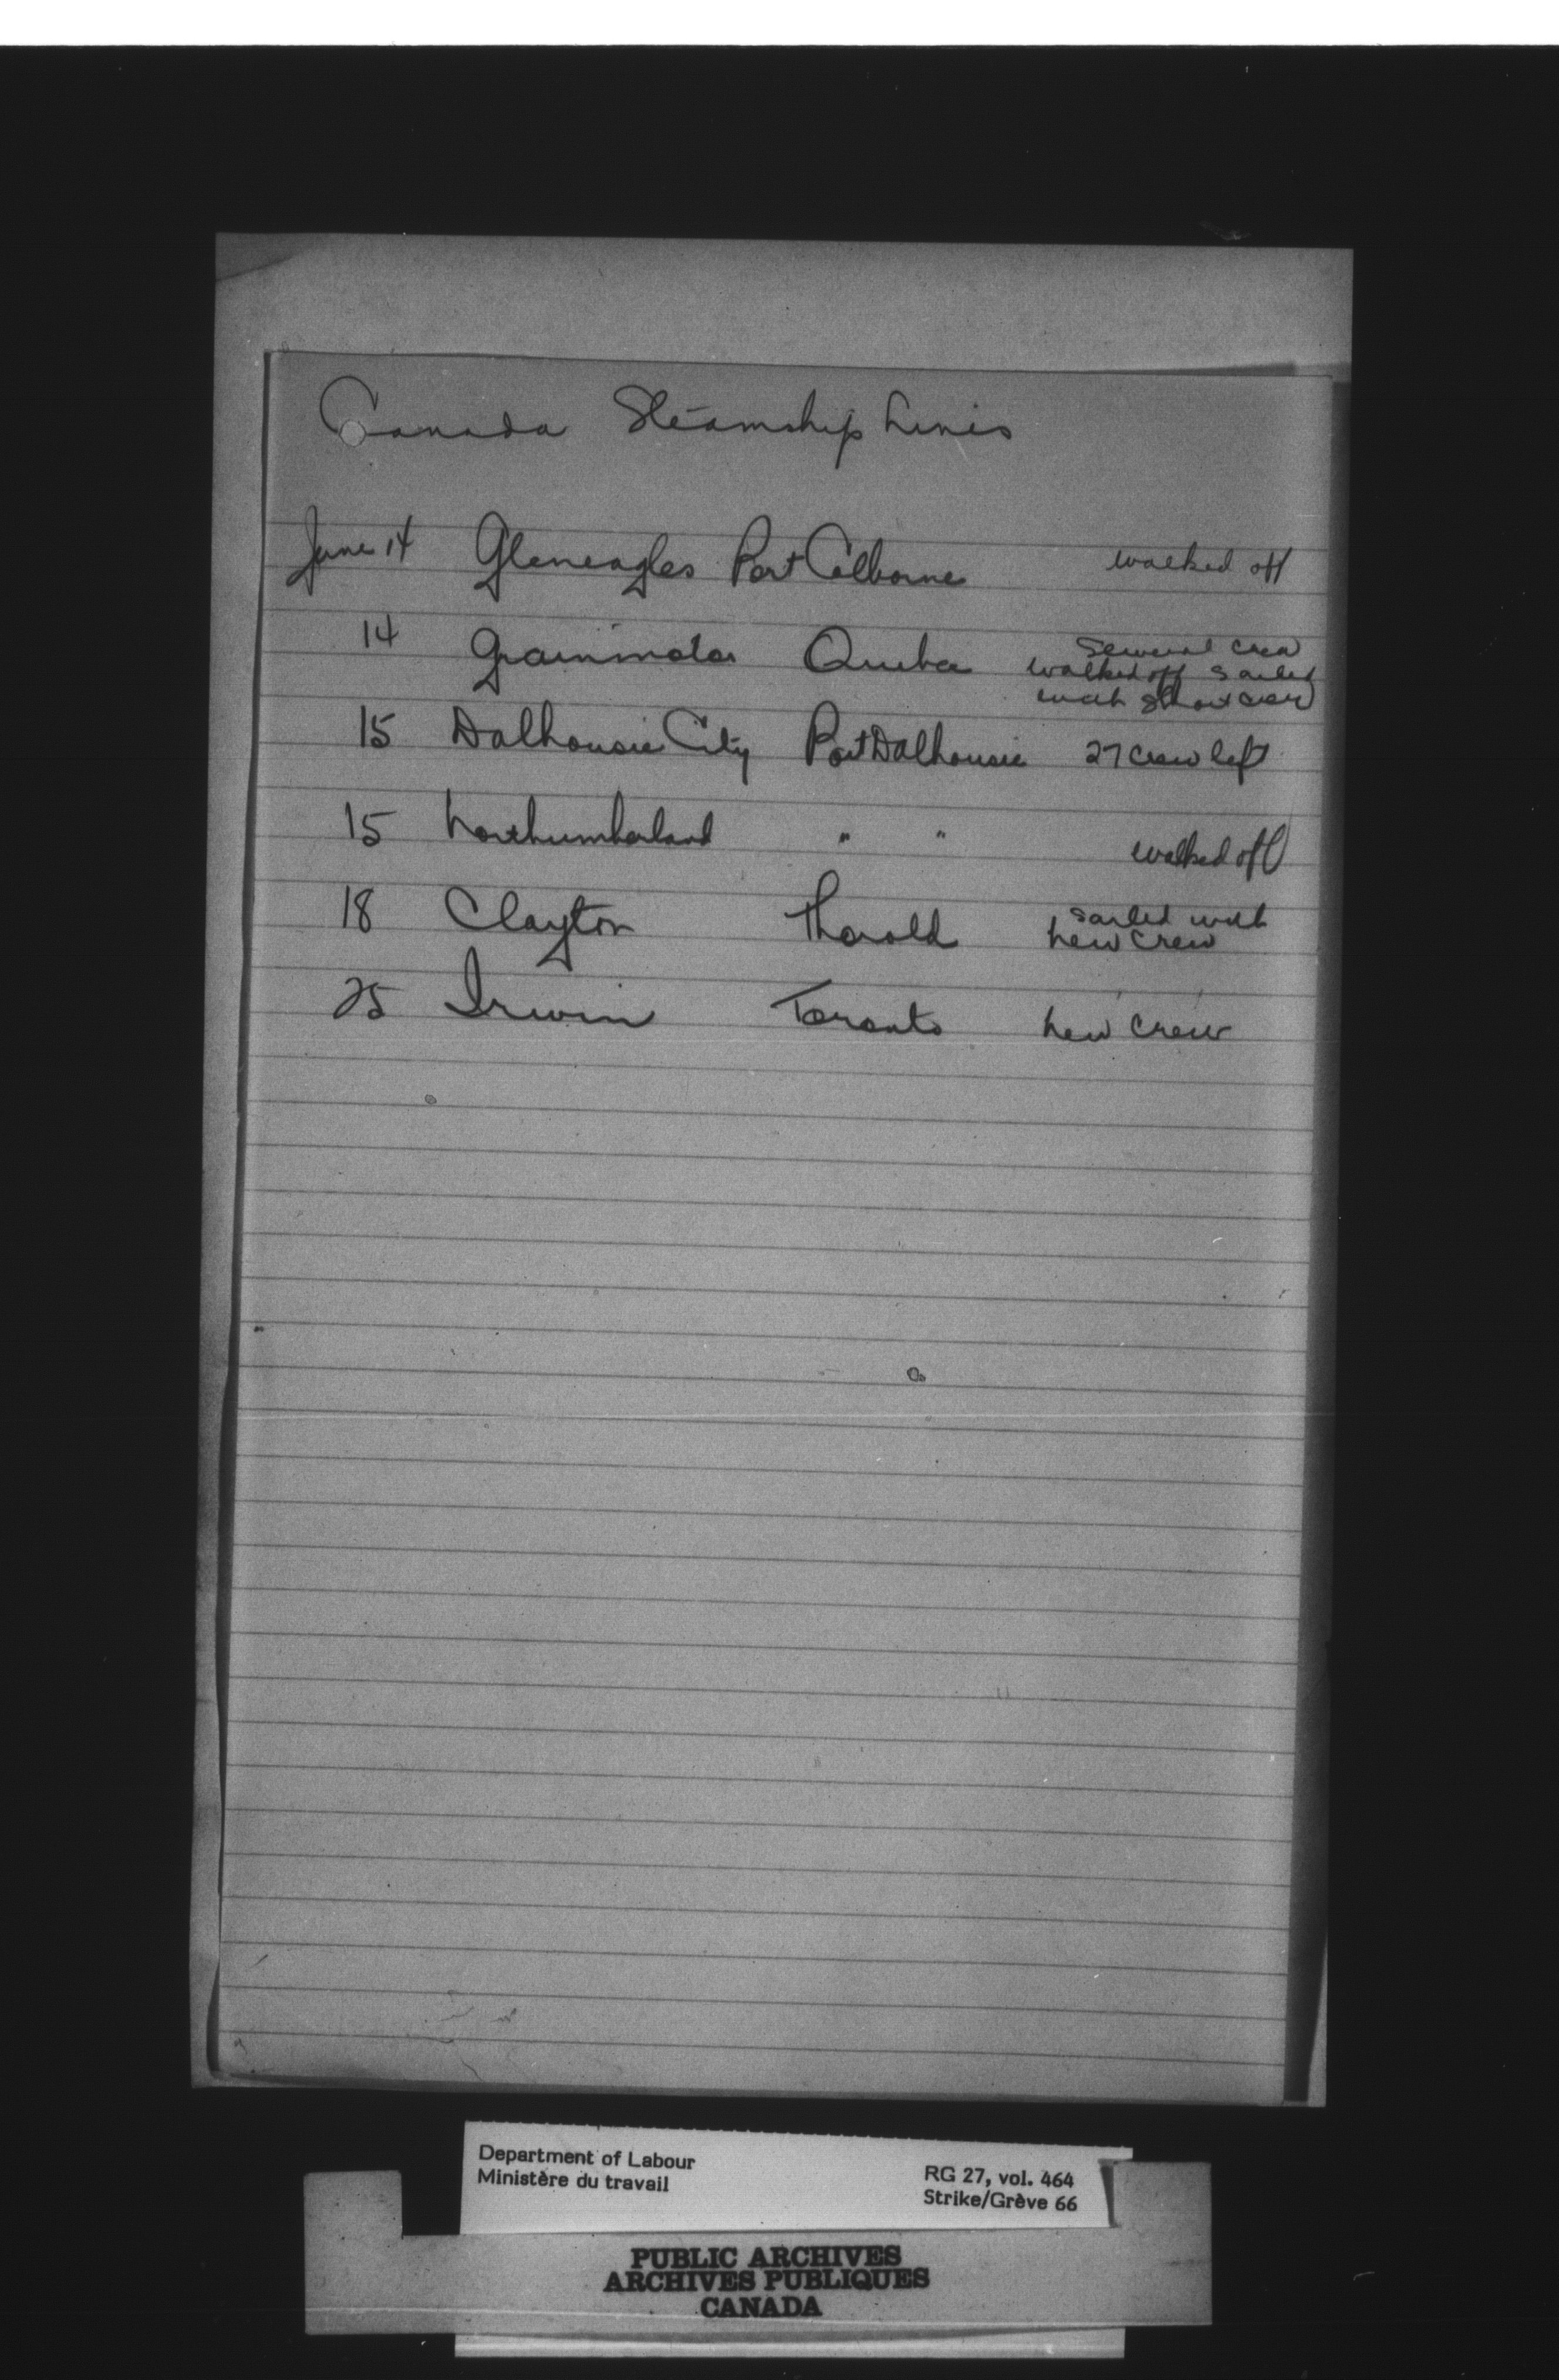 Canada Steamship Lines
June 14 Gleneagles Port Colborne walked off
14 Grainmotor Quebec Several crew
walked off sailed
with short crew
15 Dalhousie City Port Dalhousie 27 crew left
15 Northumberland " " walked off
18 Clayton Thorold sailed with
new crew
25 Irwin Toronto new crew
Department of Labour
Ministère du travail
RG 27, vol. 464
Strike/Grève 66
PUBLIC ARCHIVES
ARCHIVES PUBLIQUES
CANADA